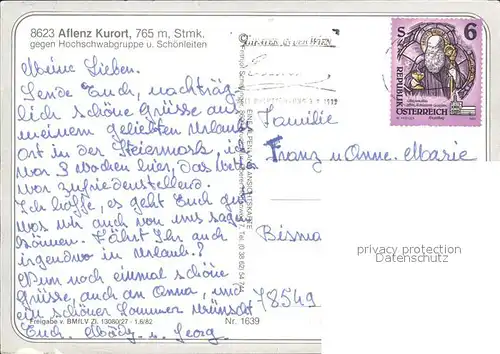 8623 Aflenz Kurort, 765 m, Stmk.
gegen Hochschwabgruppe u. Schönleiten
Meine Lieben.
Sende Euch, nachträg-
lich schöne Grüsse aus
meinem geliebten Urlaubs
ort in der Steiermark, ich
war 3 Wochen hier, das Wetter
war zufriedenstellend.
Ich hoffe, es geht Euch gut
was wir auch von uns sagen
können. Fährt Ihr auch
irgendwo in Urlaub?
Nun noch einmal schöne
Grüsse, auch an Anna, und
ein schöner Sommer wünscht
Euch u. Georg
Freigabe v. BMfLV Zl. 13080/27 - 1.6/82
Nr. 1639
S 6
REPUBLIK
ÖSTERREICH
Familie
Franz u Anne-Marie
Bisma
78549
privacy protection
Datenschutz